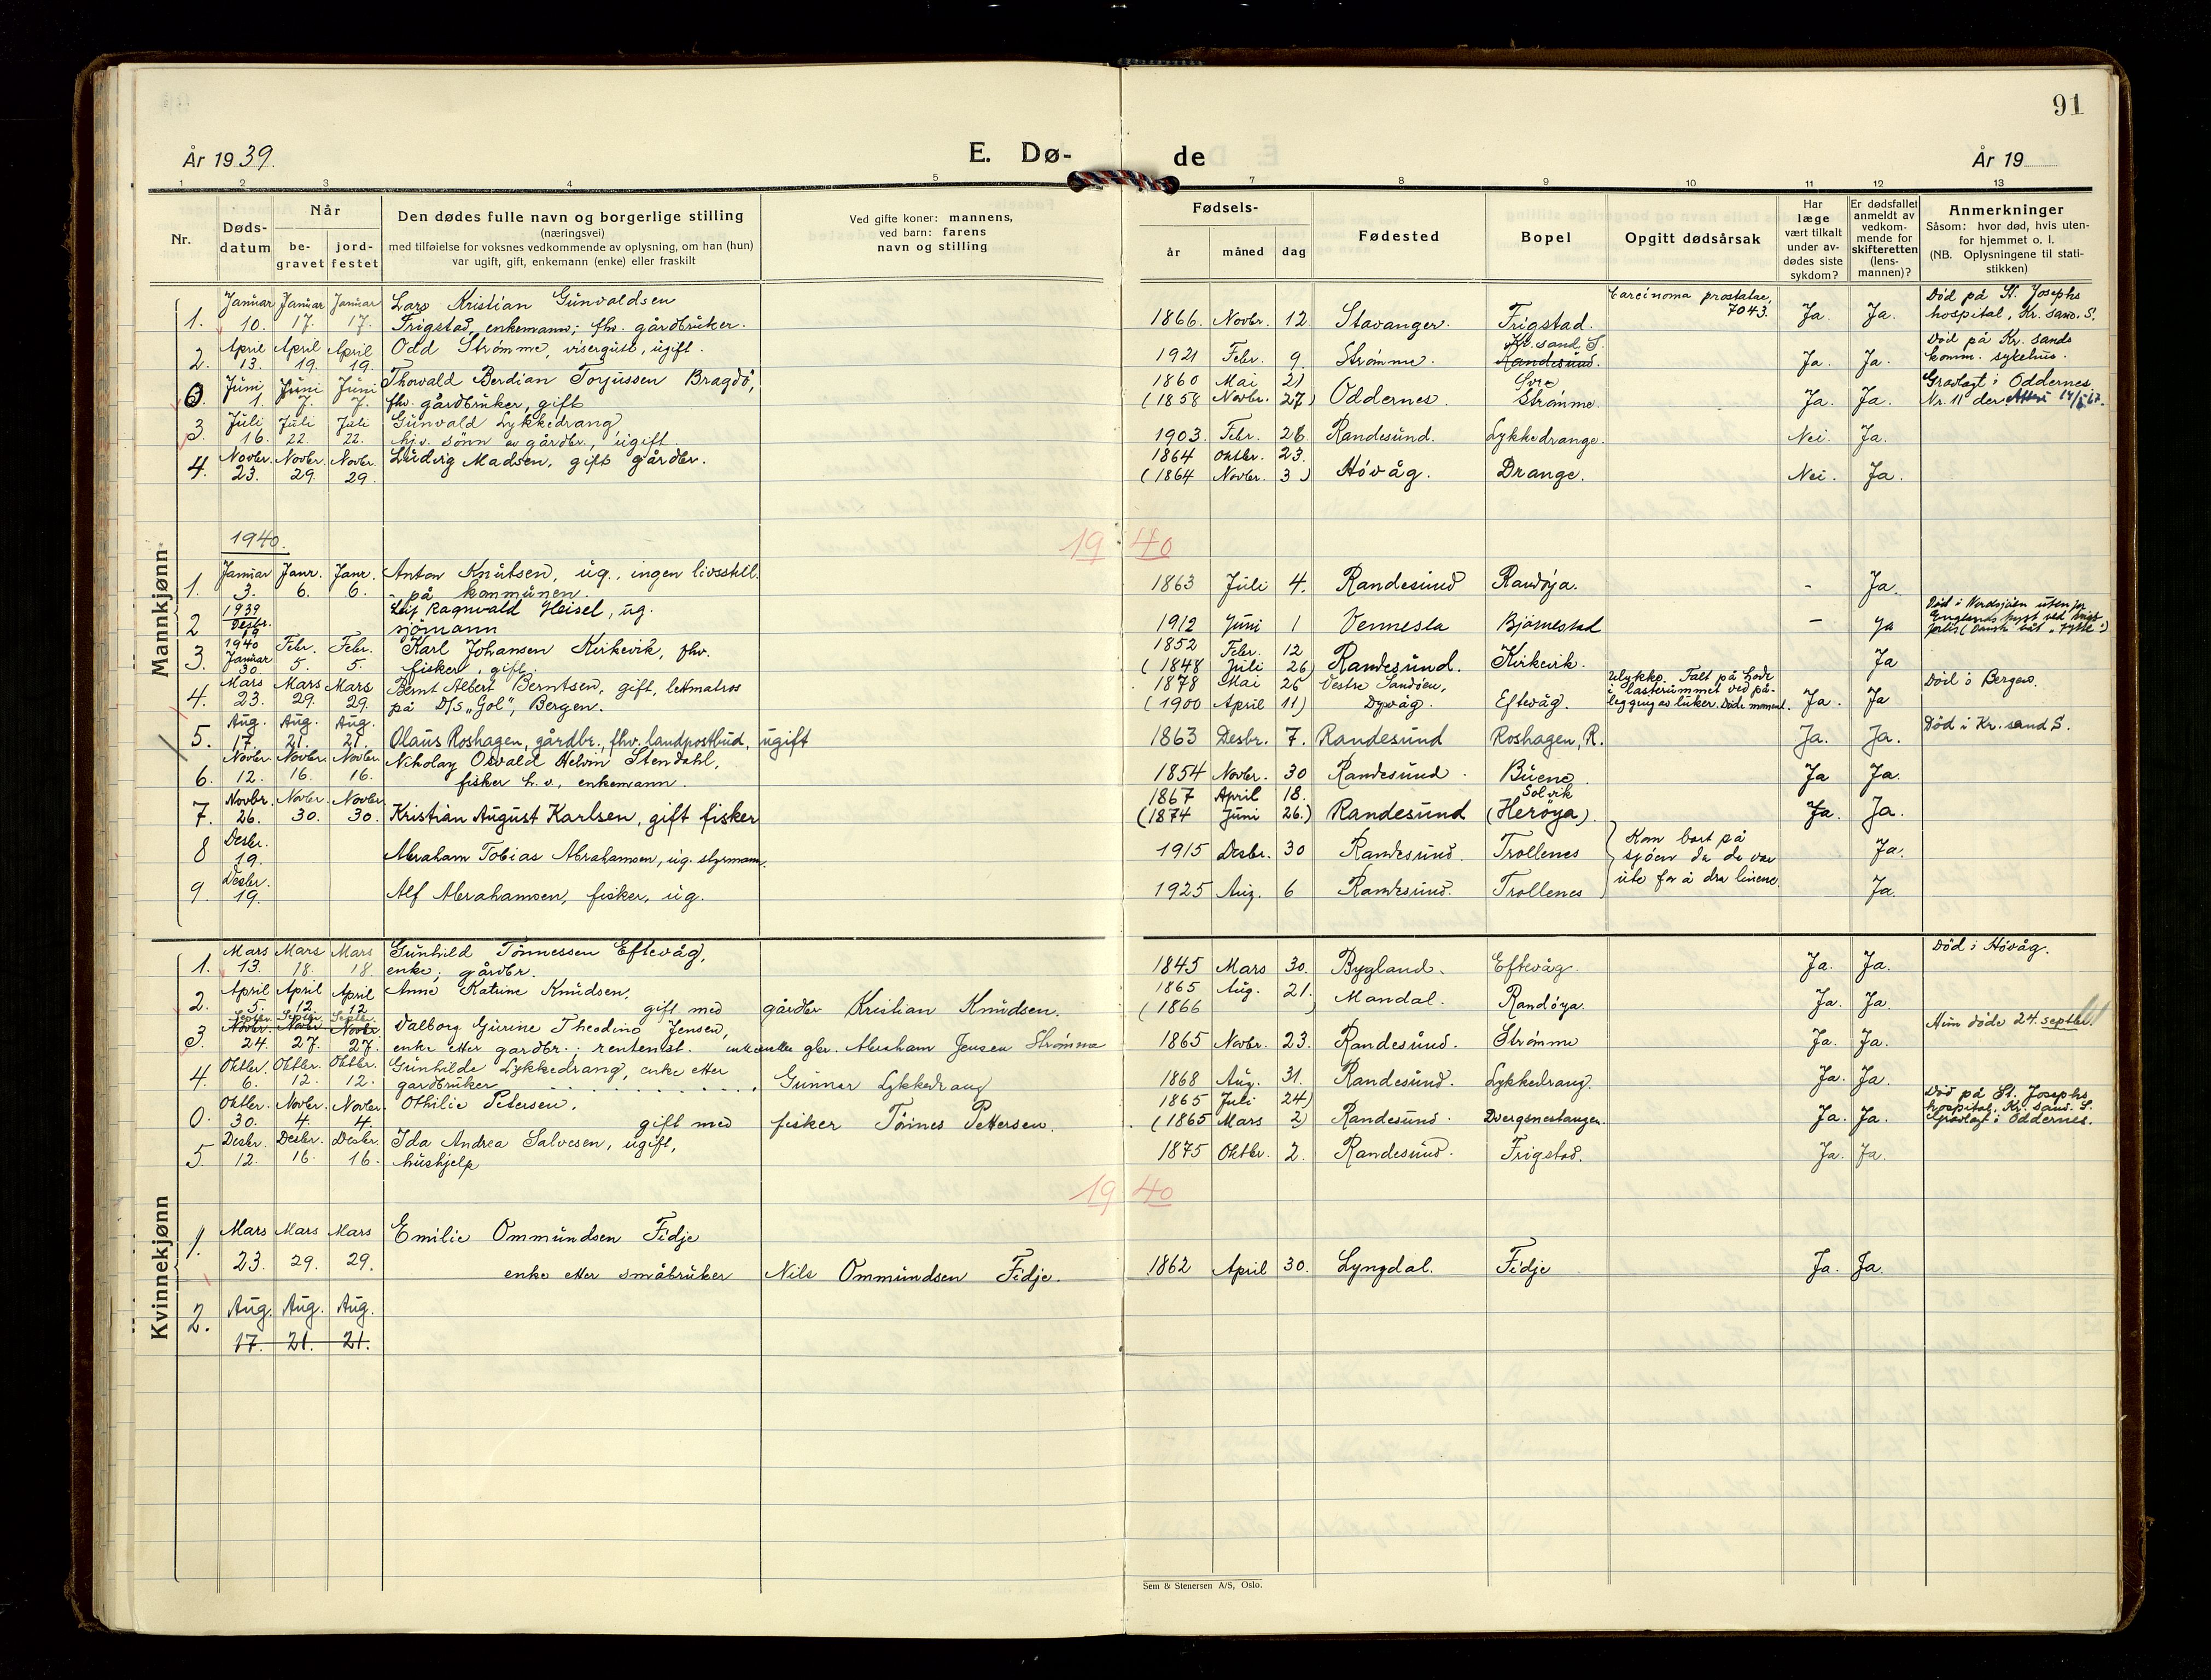 91
År 1939.
E. Dø-
de
År 19
1 2 3 4 5 7 8 9 10 11 12 13
Nr.
Døds-
datum
Når
be-
gravet
jord-
festet
Den dødes fulle navn og borgerlige stilling
(næringsvei)
med tilføielse for voksnes vedkommende av oplysning, om han (hun)
var ugift, gift, enkemann (enke) eller fraskilt
Ved gifte koner: mannens,
ved barn: farens
navn og stilling
Fødsels-
år måned dag
Fødested
Bopel
Opgitt dødsårsak
Har
læge
vært tilkalt
under av-
dødes siste
sykdom?
Er dødsfallet
anmeldt av
vedkom-
mende for
skifteretten
(lens-
mannen)?
Anmerkninger
Såsom: hvor død, hvis uten-
for hjemmet o. l.
(NB. Oplysningene til stati-
stikken)
Mannkjønn
Januar Januar Januar Lars Kristian Gunvaldsen Carcinoma prostatae, Død på St. Josephs
1. 10. 17. 17. Frigstad, enkemann; fhv. gårdbruker. 1866. Novbr. 12 Stavanger. Frigstad. 7043. Ja. Ja. hospital, Kr.sand. S.
April April April Odd Strømme, visergutt, ugift. Kr.sand S. Død på Kr.sands
2. 13. 19. 19. 1921 Febr. 9 Strømme. Randesund. Ja. Ja. komm. sykehus.
Juni Juni Juni Thorvald Berdian Torjussen Bragdø, 1860 Mai 21 Gravlagt i Oddernes
0. 1. 7. 7. fhv. gårdbruker, gift (1858 Novbr. 27) Oddernes. Strømme. Ja. Ja. Nr. 11 der
Juli Juli Juli Gunvald Lykkedrang
3. 16. 22. 22. hjv. sønn av gårdbr., ugift. 1903. Febr. 28 Randesund. Lykkedrange. Nei. Ja.
Novbr. Novbr. Novbr. Ludvig Madsen, gift gårdbr. 1864 Oktbr. 23.
4. 23. 29. 29. (1864 Novbr. 3) Høvåg. Drange. Nei. Ja.
1940.
19 40
Januar Janr. Janr. Anton Knutsen, ug., ingen livsstill.
1. 3. 6. 6. - på kommunen. 1863 Juli 4. Randesund Randøya. - Ja.
1939 Leif Ragnvald Heisel, ug. Død i Nordsjøen utenfor
2 Desbr. 19 sjømann 1912 Juni 1 Vennesla Bjørnestad - ja Englands kyst ved
1940 Febr. Febr. Karl Johansen Kirkevik, fhv. 1852 Febr. 12
3. Januar 30 5. 5. fisker, gift. (1848 Juli 26) Randesund. Kirkevik. Ja
Mars Mars Mars Bernt Albert Berntsen, gift, lettmatros 1878 Mai 26 Vestre Sandøen, Ulykke. Falt på hode Død i Bergen.
4. 23. 29. 29. på D/S "Gol", Bergen. (1900 April 11) Dypvåg. Eftevåg. i lasterummet ved på-
legging av luker. Døde moment. Ja. Ja
Aug. Aug. Aug.
5. 17. 21. 21. Olaus Roshagen, gårdbr., fhv. landpostbud, ugift 1863 Desbr. 7. Randesund Roshagen, R. Ja. Ja. Død i Kr.sand S.
Novbr. Novbr. Novbr. Nikolay Osvald Helvin Stendahl,
6. 12. 16. 16. fisker h.v., enkemann. 1854 Novbr. 30 Randesund. Buene Ja Ja.
Novbr. Novbr. Novbr. 1867 April 18. Solvik
7. 26. 30. 30. Kristian August Karlsen, gift fisker (1874 Juni 26.) Randesund (Herøya). Ja. Ja.
Desbr. Kom bort på
8 19. Abraham Tobias Abrahamsen, ug. styrmann. 1915 Desbr. 30 Randesund. Trollenes sjøen da de var Ja.
Desbr. ute for å dra linene.
9. 19. Alf Abrahamsen, fisker, ug. 1925 Aug. 6 Randesund. Trollenes Ja.
Kvinnekjønn
Mars Mars Mars Gunhild Tønnessen Eftevåg, Død i Høvåg.
1. 13. 18. 18. enke; gårdbr. 1845 Mars 30. Bygland. Eftevåg. Ja. Ja.
April April April Anne Katrine Knudsen, 1865 Aug. 21.
2. 5. 12 12 gift med gårdbr Kristian Knudsen. (1866 ) Mandal. Randøya. Ja. Ja.
Septbr. Septbr. Septbr.
Novbr. Novbr Novbr Valborg Gurine Theodine Jensen, Hun døde 24. septbr.
3. 24. 27. 27. enke etter gårdbr.; rentenist. enke etter gbr. Abraham Jensen Strømme 1865 Novbr. 23. Randesund. Strømme Ja. Ja.
Oktbr. Oktbr. Oktbr. Gunhilde Lykkedrang, enke etter
4. 6. 12. 12. gardbruker Gunnar Lykkedrang 1868 Aug. 31. Randesund. Lykkedrang. Ja. Ja.
Oktbr. Novbr. Novbr. Othilie Petersen. 1865 Juli 24) Død på St. Josephs
0. 30. 4. 4. gift med fisker Tønnes Pettersen. (1865 Mars 2) Randesund. Dvergsnestangen. Ja. Ja. hospital, Kr.sand. S.
Gravlagt i Oddernes.
Desbr. Desbr. Desbr Ida Andrea Salvesen, ugift,
5. 12. 16. 16. hushjelp 1875 Oktbr. 2. Randesund. Frigstad. Ja. Ja.
19 40
Mars Mars Mars Emilie Ommundsen Fidje
1. 23. 29. 29. enke etter småbruker Nils Ommundsen Fidje. 1862 April 30. Lyngdal. Fidje Ja. Ja.
Aug. Aug. Aug.
2. 17. 21. 21.
Sem & Stenersen A/S, Oslo.